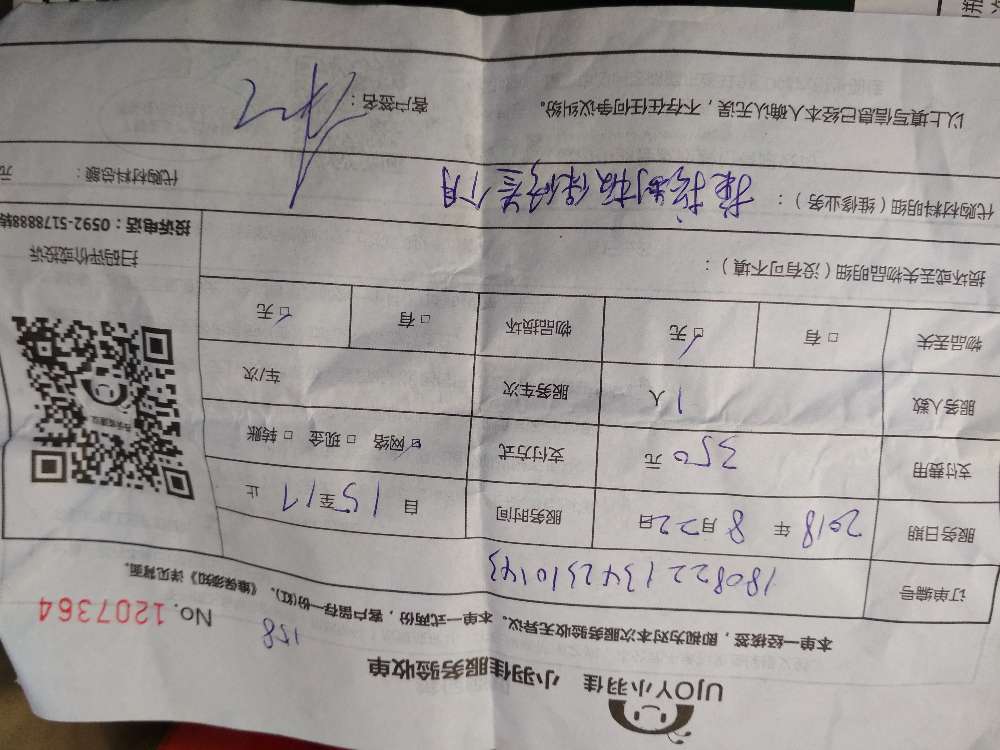 UJOY小羽佳 小羽佳服务验收单
158
No. 1207364
本单一经接签，即视为对本次服务验收无异议。本单一式两份，客户留存一份(红)，《维保须知》详见背面。
订单编号 1808221342310143
服务日期 2018 年 8 月 22 日 服务时间 自 15 至 17 止
支付费用 350 元 支付方式 网络 现金 转账
服务人数 1 人 服务车次 车/次
物品丢失 有 无 物品损坏 有 无
损坏或丢失物品明细（没有可不填）：
扫码评价或投诉
投诉电话：0592-5178888转
代购材料明细（维修业务）： 控制板保修叁个月
代购材料总额： 元
以上填写信息已经本人确认无误，不存在任何争议纠纷。 客户签名：